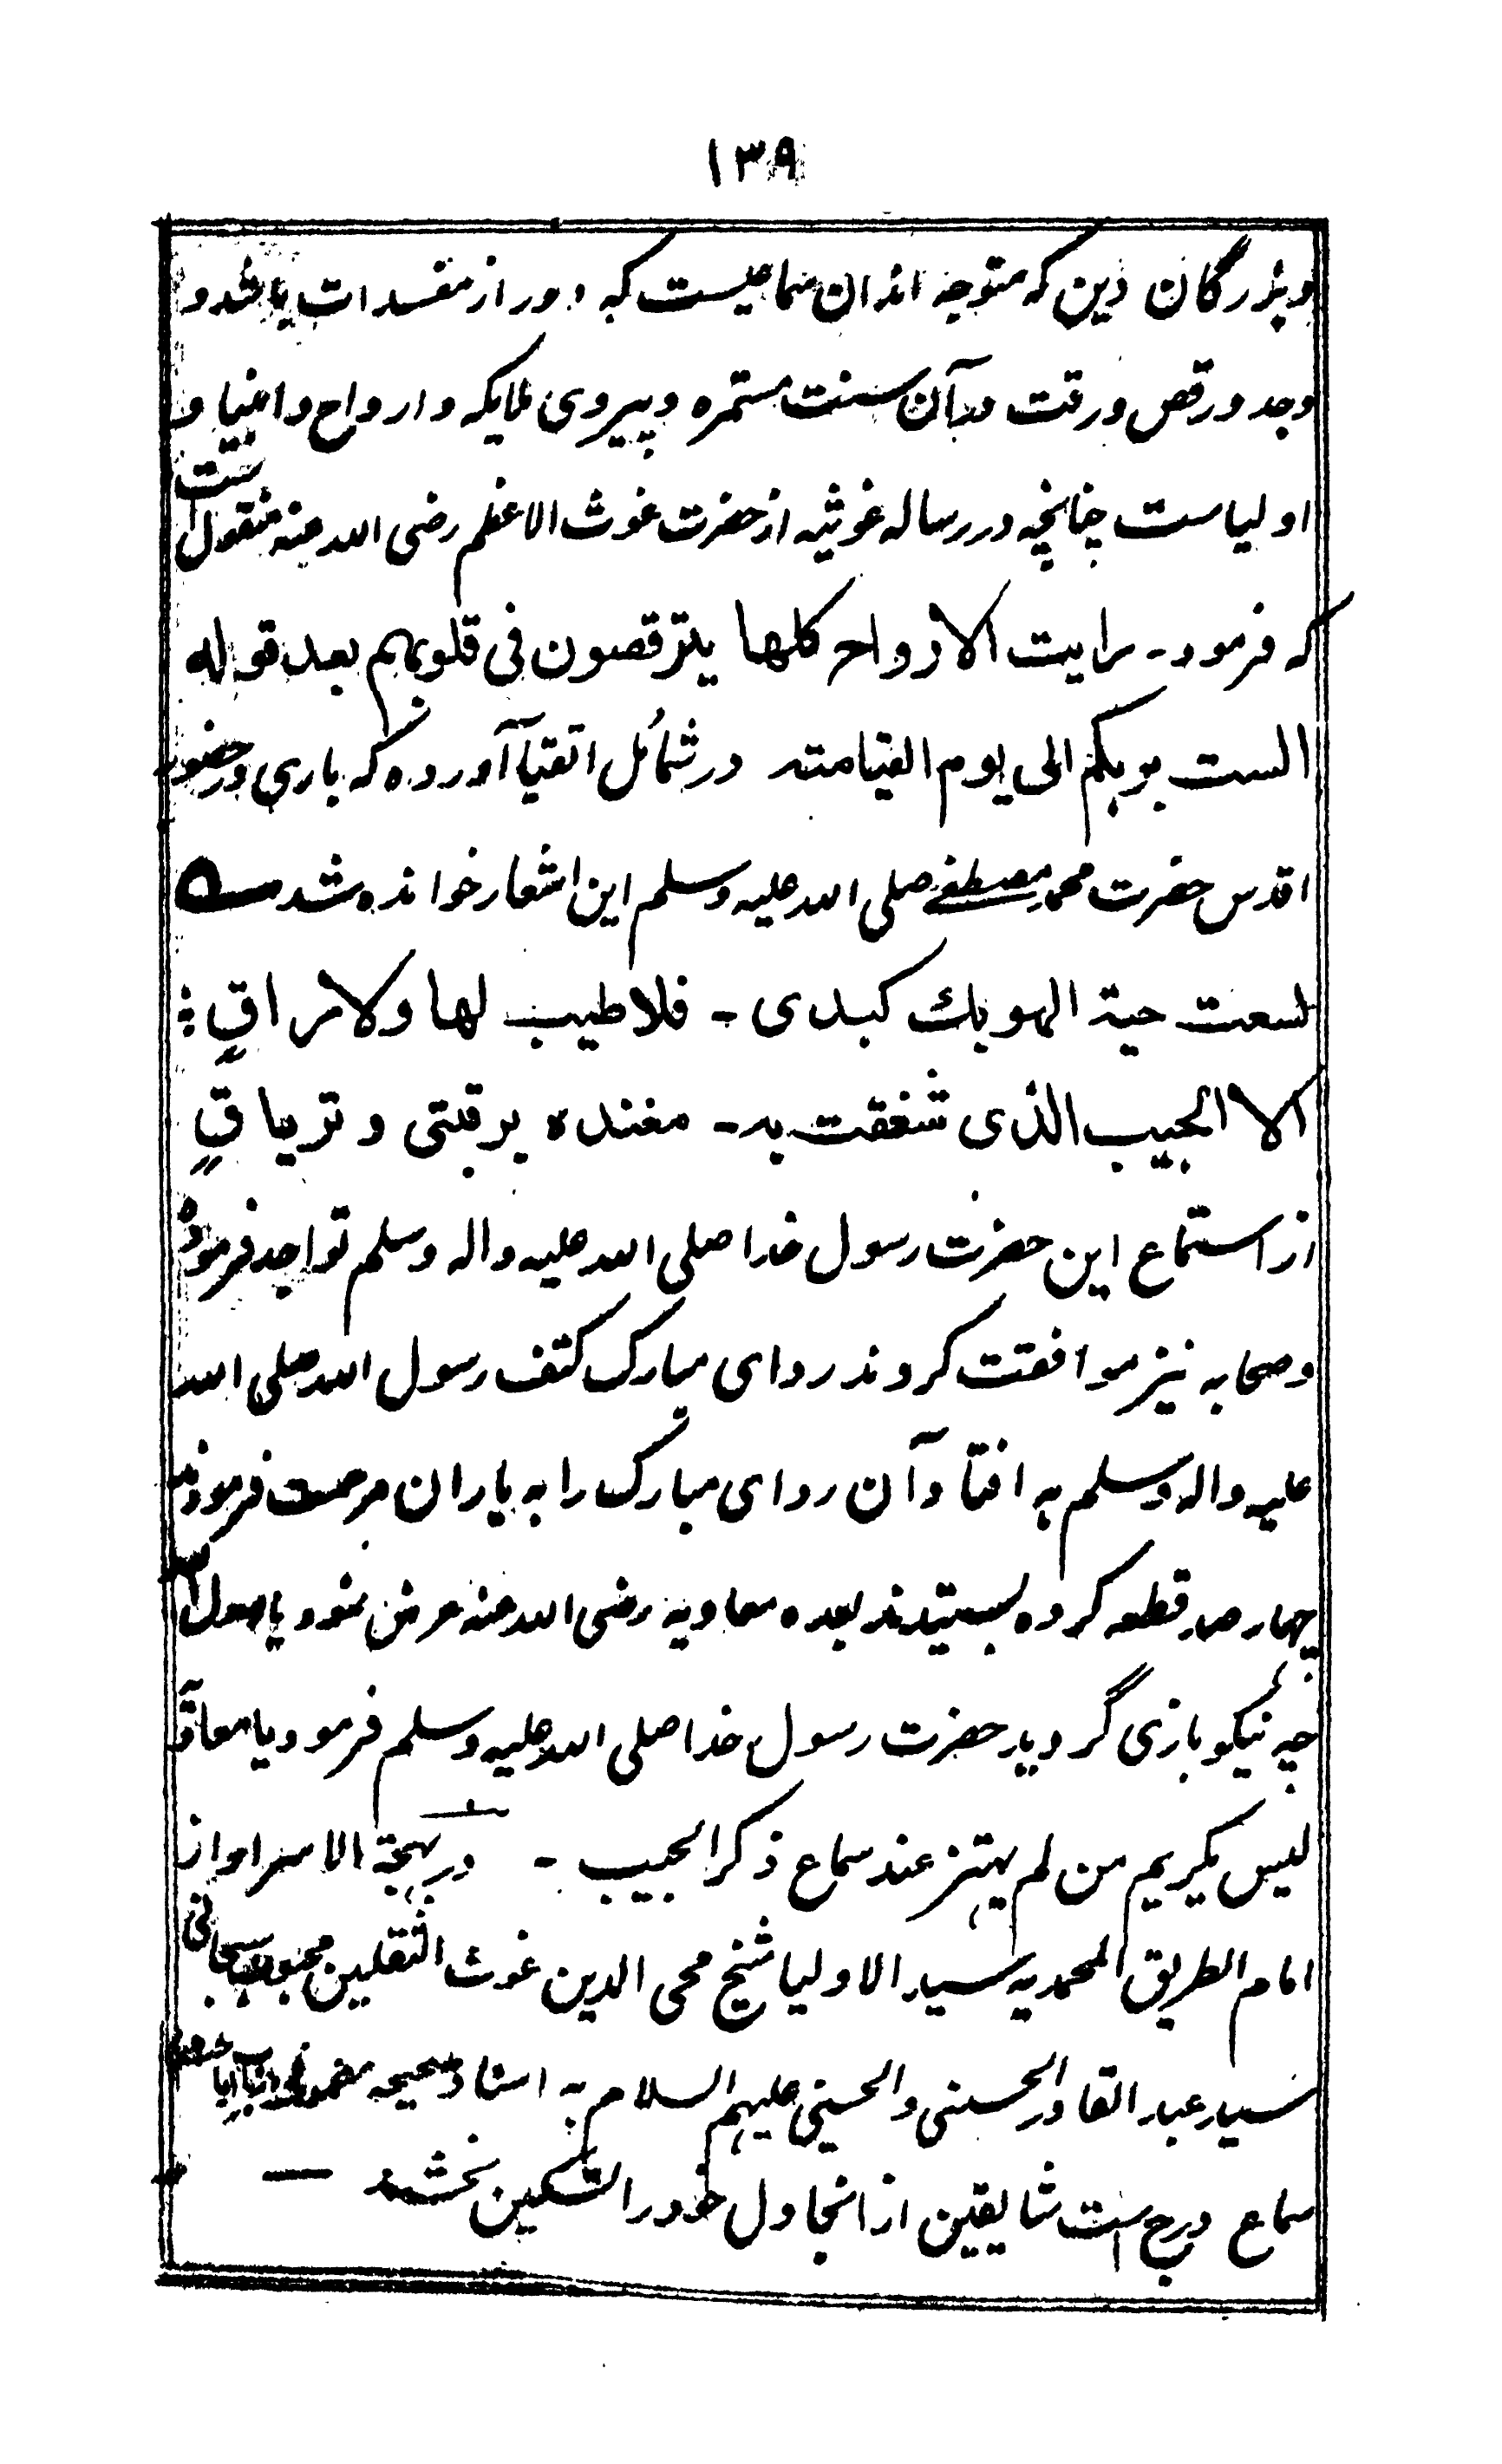 ۱۳۹
وبزرگان دین که متوجه اندان سماعیست که دور از مفسدات باشد و
وجد ورقص ورقت درآن سنت مستمره وپیروی ملایکه وارواح وانبیا و
اولیاست چنانچه در رساله غوثیه از حضرت غوث الاعظم رضی الله عنه منقول است
که فرمود۔ رایت الارواح کلها یترقصون فی قلوبهم بعد قوله
الست بربکم الی یوم القیامته در شمائل اتقیا آورده که باری در حضور
اقدس حضرت محمد مصطفے صلی الله علیه وسلم این اشعار خوانده شد ؎
لسعت حیة الهویك کبدی ۔ فلا طیب لها ولا راقٍ :
الا الحبیب الذی شغقت به ۔ مغنده برقبتی و تریاقٍ
از استماع این حضرت رسول خدا صلی الله علیه واله وسلم تواجد فرمود
وصحابه نیز موافقت کروند ردای مبارک کتف رسول الله صلی الله
علیه واله وسلم به افتاد آن ردای مبارک را به یاران مرحمت فرمودند
چهار صد قطعه کرده بستیدند بعده معاویه رضی الله عنه عرض نمود یا رسول الله
چه نیکو بازی گردید حضرت رسول خدا صلی الله علیه وسلم فرمود یا معاویه
لیس بکریم من لم یهتز عند سماع ذکر الحبیب ۔ در بهجة الاسرار از
امام الطریق المحمدیه سید الاولیا شیخ محی الدین غوث الثقلین محبوب سبحانی
سید عبد القادر الحسنی والحسینی علیهم السلام به اسناد صحیحه
سماع درج است شایقین از انجا دل خود را تسکین بخشند —